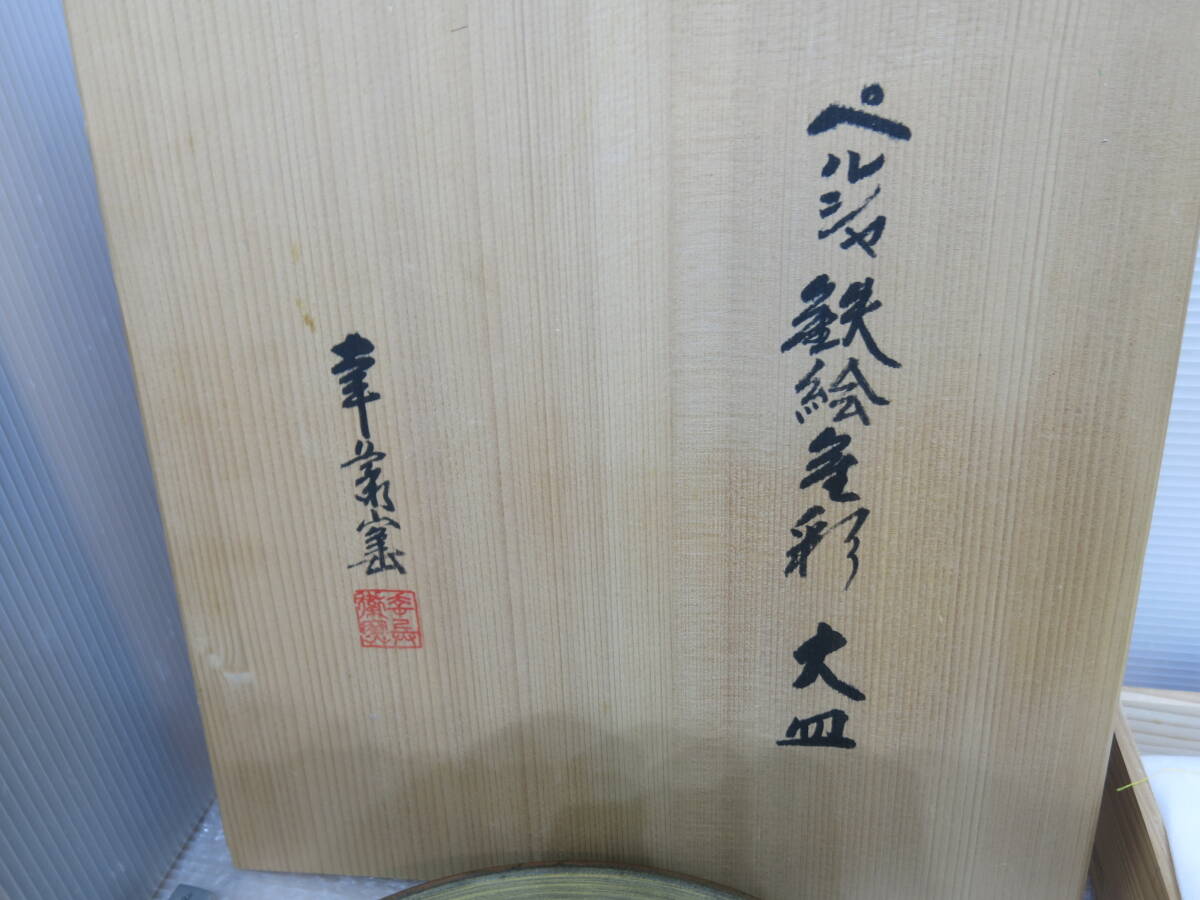 ペルシャ鉄絵金彩 大皿
幸兵衛窯